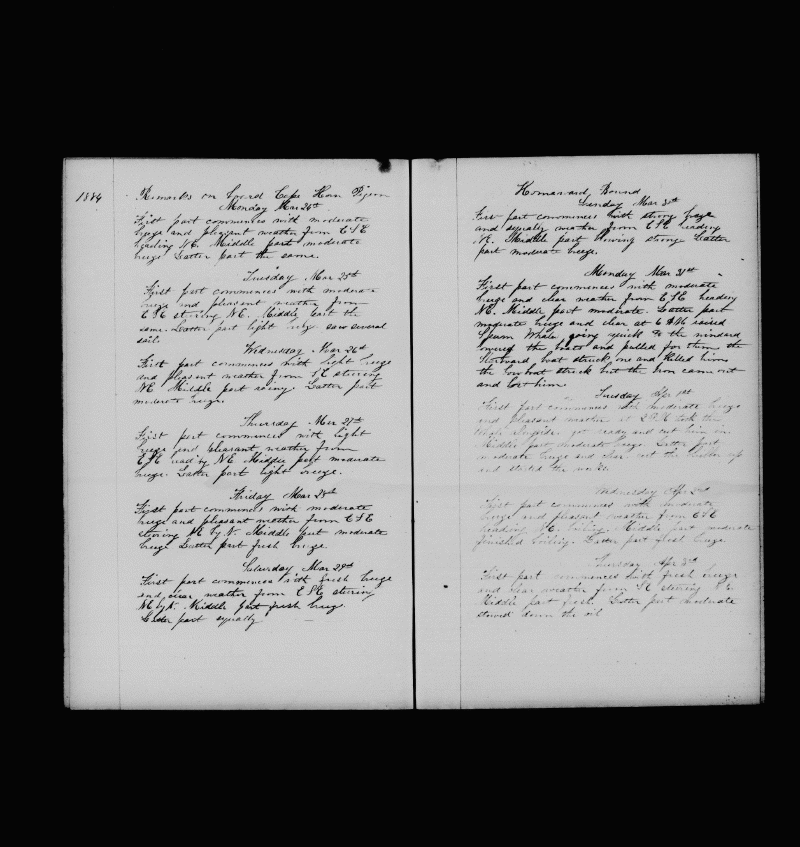 1884
Remarks on board Cape Horn Pigeon
Monday Mar 24th
First part commences with moderate
breeze and pleasant weather from ESE
heading NE. Middle part moderate
breeze Latter part the same.
Tuesday Mar 25th
First part commences with moderate
breeze and pleasant weather from
ESE steering NE. Middle part the
same. Latter part light breeze saw several
sail.
Wednesday Mar 26th
First part commences with light breeze
and pleasant weather from SE steering
NE Middle part rainy. Latter part
moderate breeze.
Thursday Mar 27th
First part commences with light
breeze and pleasant weather from
ESE heading NE Middle part moderate
breeze. Latter part light breeze.
Friday Mar 28th
First part commences with moderate
breeze and pleasant weather from ESE
steering NE by N. Middle part moderate
breeze Latter part fresh breeze.
Saturday Mar 29th
First part commences with fresh breeze
and clear weather from ESE steering
NE by N. Middle part fresh breeze.
Latter part squally
Homeward Bound
Sunday Mar 30th
First part commences with strong breeze
and squally weather from ESE heading
NE. Middle part blowing strong Latter
part moderate breeze.
Monday Mar 31st
First part commences with moderate
breeze and clear weather from ESE heading
NE. Middle part moderate. Latter part
moderate breeze and clear at 6 AM raised
Sperm Whales going quick to the windard
lowered the boats and pulled for them the
Starboard boat struck one and killed him
the bow boat struck but the iron came out
and lost him.
Tuesday Apr 1st
First part commences with moderate breeze
and pleasant weather at 2 PM took the
whale alongside got ready and cut him in.
Middle part moderate breeze. Latter part
moderate breeze and clear cut the up
and started the works.
Wednesday Apr 2nd
First part commences with moderate
breeze and pleasant weather from ESE
heading NE. boiling. Middle part moderate
finished boiling. Latter part fresh breeze
Thursday Apr 3rd
First part commences with fresh breeze
and clear weather from SE steering NE.
Middle part fresh. Latter part moderate
stowed down the oil